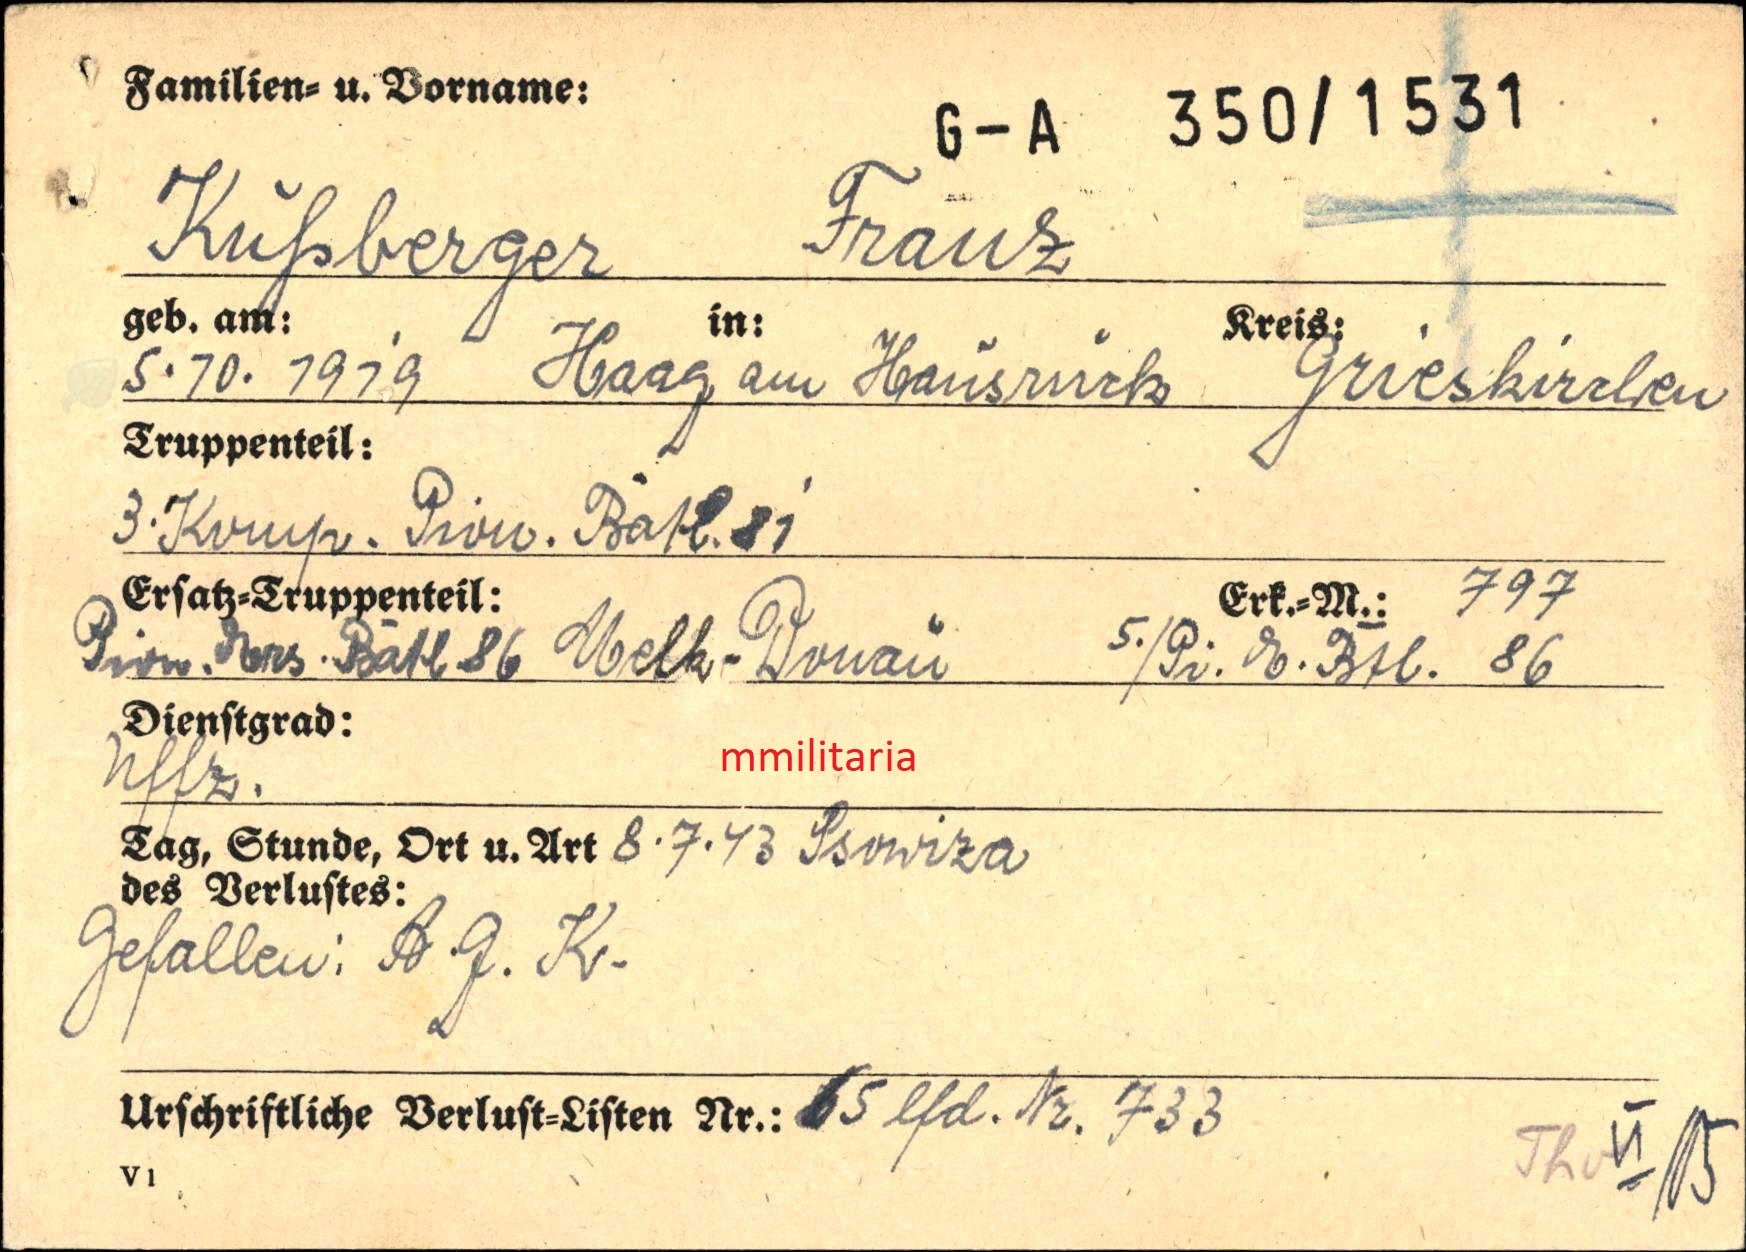 Familien- u. Vorname:
G-A 350/1531
Kußberger Franz
geb. am: in: Kreis:
5.10.1919 Haag am Hausruck Grieskirchen
Truppenteil:
3. Komp. Pion. Batl. 81
Ersatz-Truppenteil: Erk.-M.: 797
Pion. Ers. Batl 86 Melk-Donau 5./Pi. E. Btl. 86
Dienstgrad:
Uffz.
mmilitaria
Tag, Stunde, Ort u. Art 8.7.43 Ssowiza
des Verlustes:
Gefallen: A. G. K.
Urschriftliche Verlust-Listen Nr.: 65 lfd. Nr. 733
V 1
VI